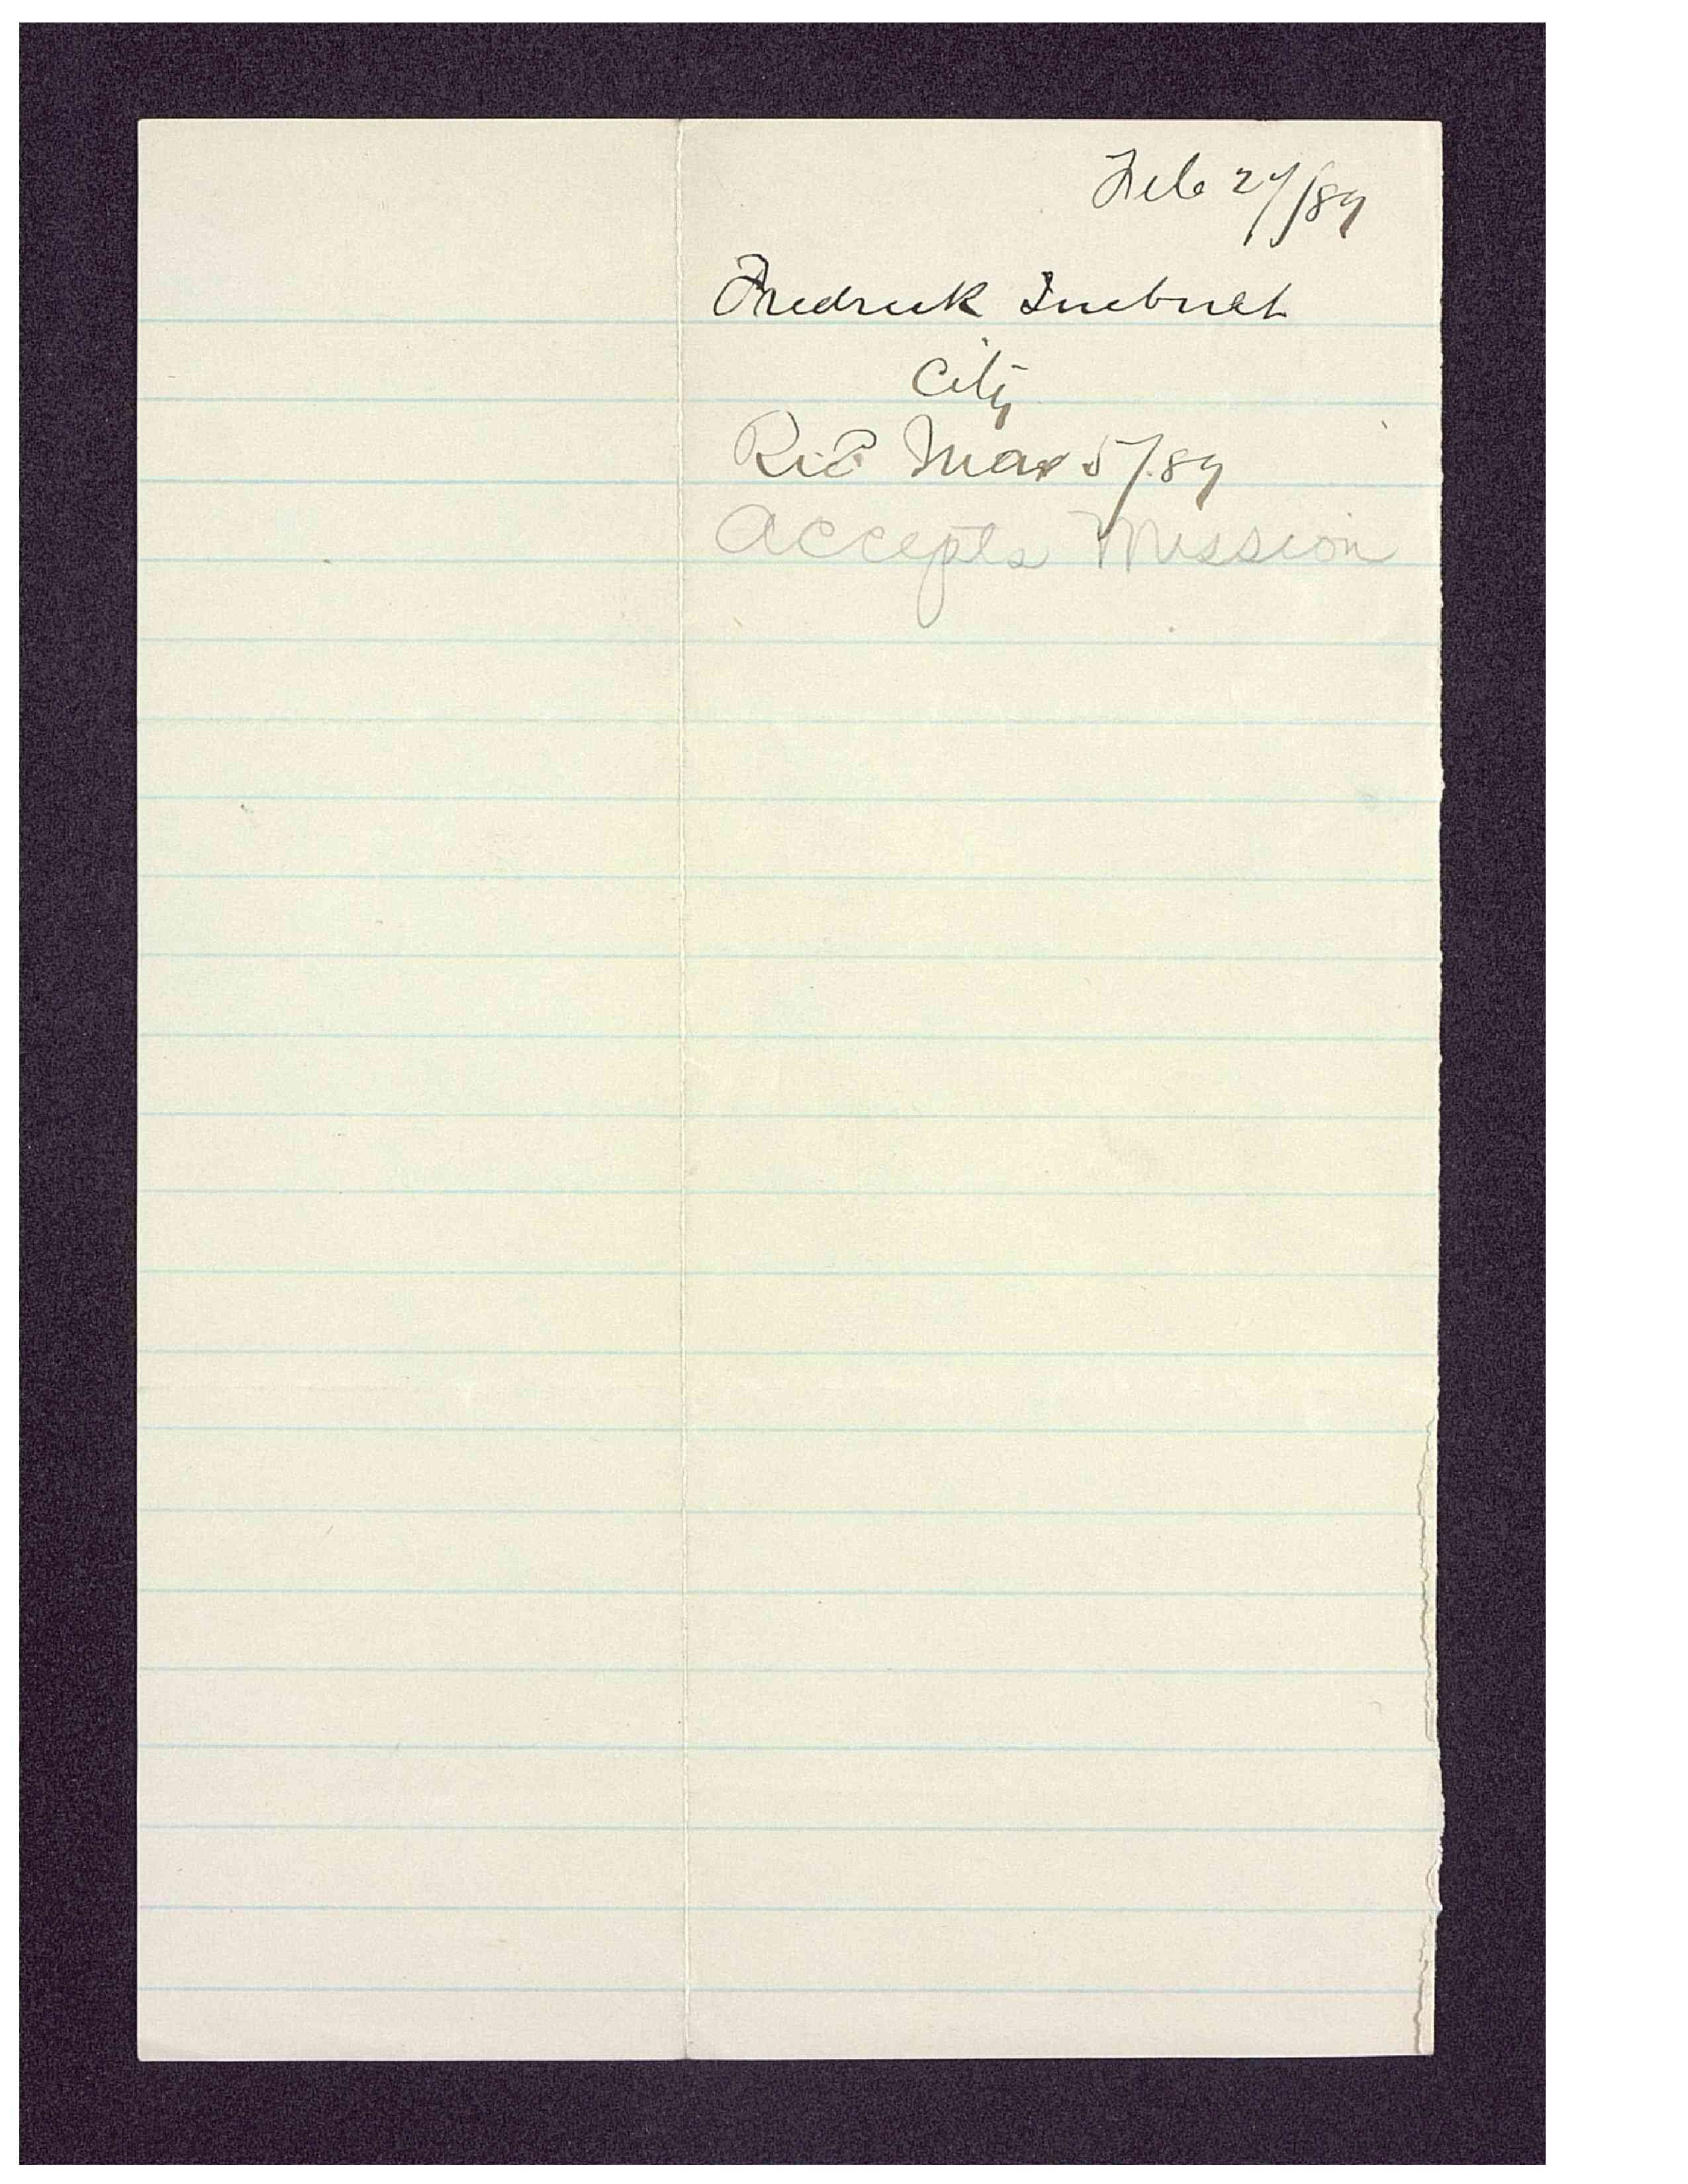 Feb 27/89
Fredrick
City
Rec^d Mar 5/89
Accepts Mission